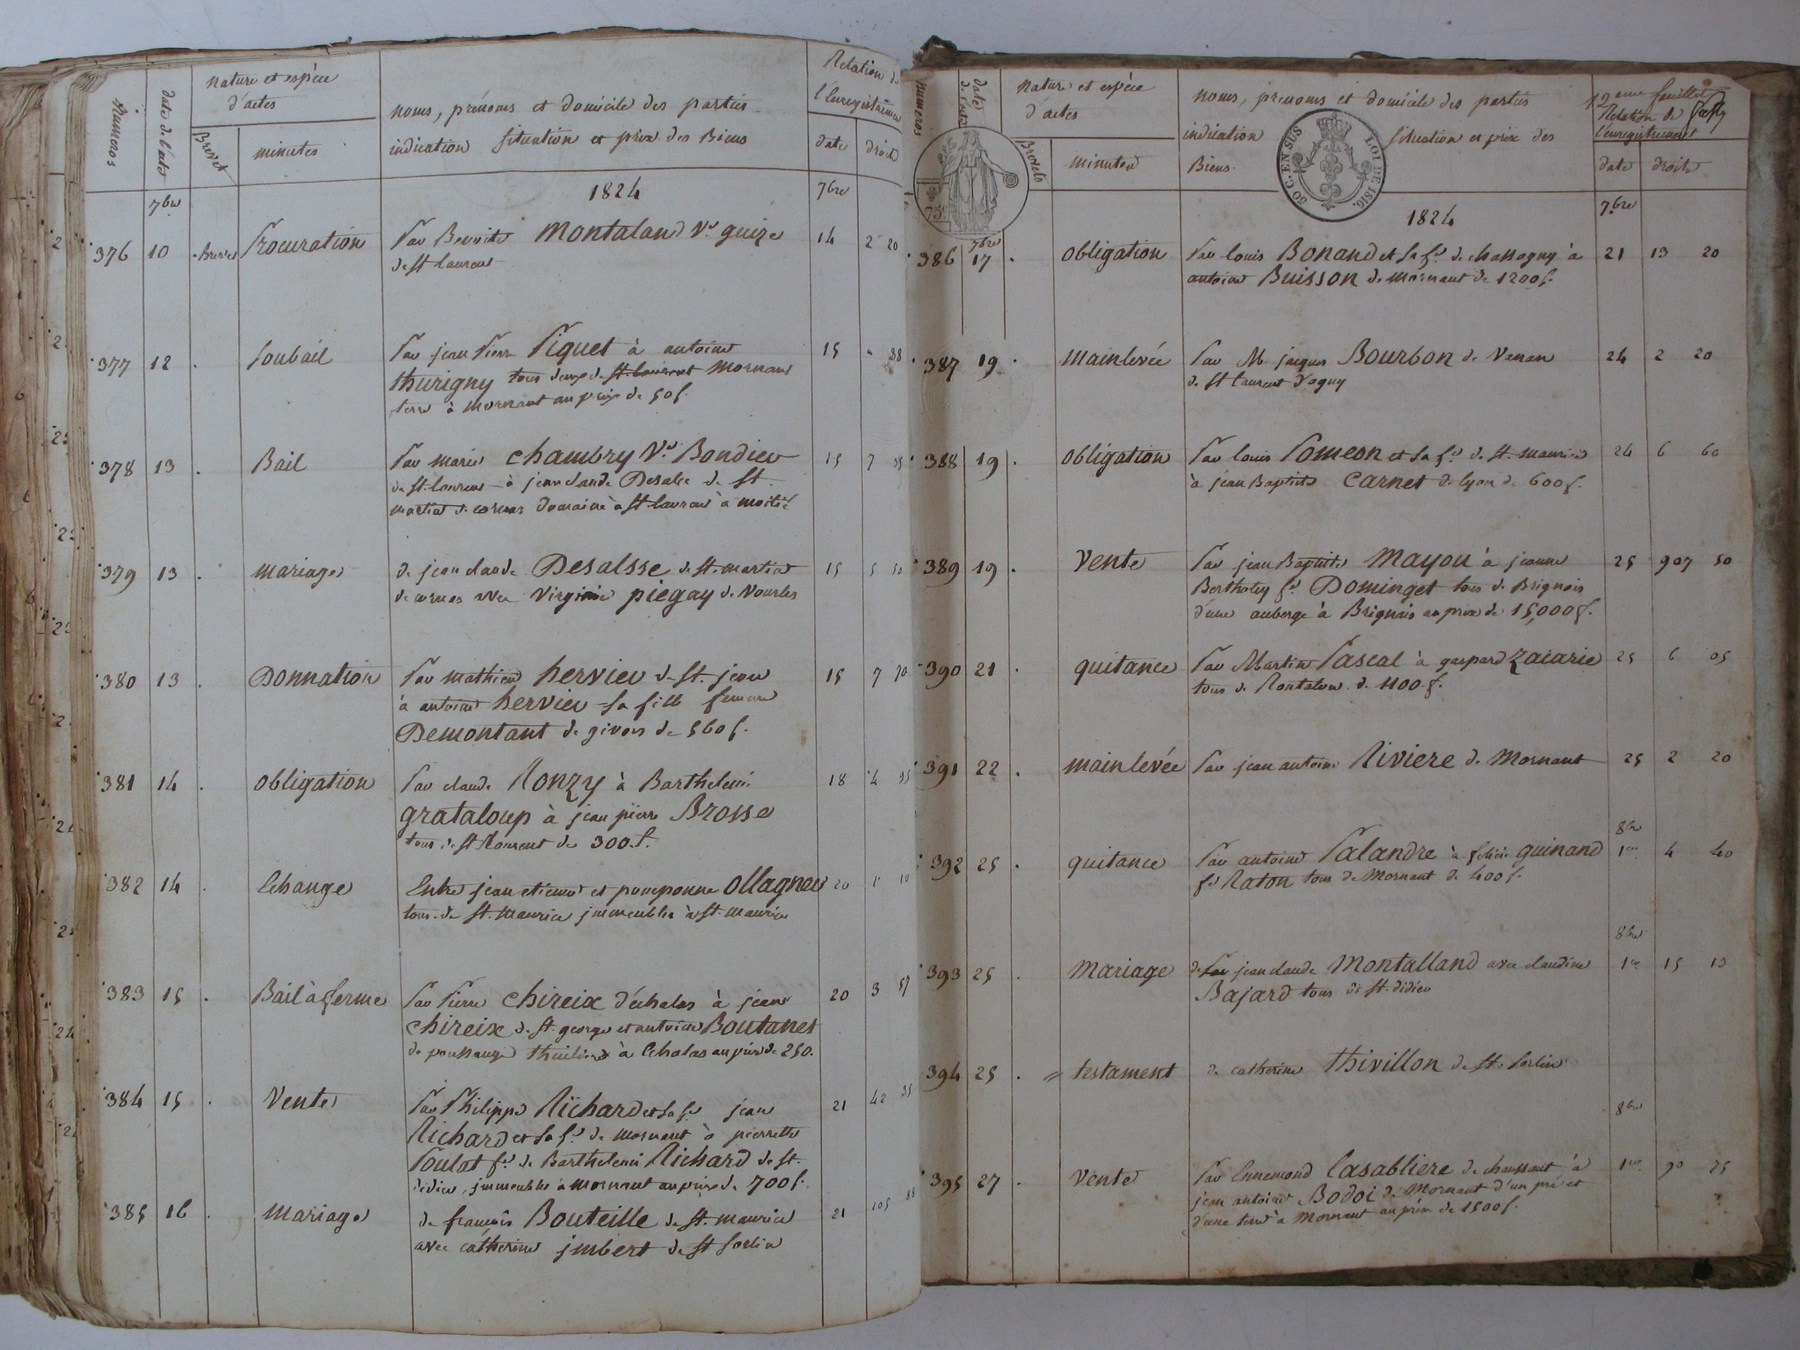 numeros
date de l'acte
nature et espèce
d'actes
Brevet
minutes
noms, prénoms et domicile des parties
indication situation et prix des Biens
Relation de
l'Enregistrement
date
droits
1824
7bre
7bre
376 10 Brevet Procuration Par Benoite Montaland Ve guize 14 2 20
de St laurent
377 12 Soubail Par jean Pierre Piquet à antoine 15 " 88
thurigny tous deux de St. laurent Mornant
terre à Mornant au prix de 50 f.
378 13 Bail Par marie Chambry Ve Bondieu 15 7 55
de St. laurent à jean claude Desalse de St
martin de cornas domaine à St laurent à moitié
379 13 mariage de jean claude Desalsse de St. martin 15 5 50
de cornas avec virginie piegay de Vourles
380 13 Donnation Par mathieu hervieu de St. jean 15 7 70
à antoine hervieu sa fille femme
Demontant de givors de 560 f.
381 14 obligation Par claude Ronzy à Barthelemi 18 4 95
grataloup à jean pierre Brosse
tous de St laurent de 300 f.
382 14 Echange Entre jean etienne et pomponne Ollagnon 20 1 10
tous de St. Maurice immeubles à St. maurice
383 15 Bail à ferme Par Pierre Chireix d'échalas à jean 20 3 57
Chireix de St. george et antoine Boutanet
de à Echalas au prix de 250.
384 15 Vente Par Philippe Richard et sa fe jean 21 42 35
Richard et sa fe de mornant à pierrette
Poulat fe de Barthelemi Richard de St.
didier, immeubles à Mornant au prix de 700 f.
385 16 Mariage de françois Bouteille de St. maurice 21 105 88
avec catherine jmbert de St Sorlin
numeros
date de l'acte
nature et espèce
d'actes
Brevets
minutes
noms, prenoms et domicile des parties
indication situation et prix des
Biens.
50 C. EN SUS LOI DE 1816.
75
12eme feuillet
Relation de
l'enregistrement
date
droits
1824
7bre
7bre
386 17 obligation Par louis Bonand et sa fe de chassagny à 21 13 20
antoine Buisson de Mornant de 1200 f.
387 19 mainlevée Par M. jacques Bourbon de Vanan 24 2 20
de St laurent d'agny
388 19 obligation Par louis Pomeon et sa fe de St. maurice 24 6 60
à jean Baptiste Carnet de lyon de 600 f.
389 19 Vente Par jean Baptiste Mayou à jeanne 25 907 50
Bertholey fe Dominget tous de Brignais
d'une auberge à Brignais au prix de 15,000 f.
390 21 quitance Par Martin Pascal à gaspard Zacarie 25 6 05
tous de Rontalon de 1100 f.
391 22 mainlevée Par jean antoine Riviere de Mornant 25 2 20
8bre
392 25 quitance Par antoine Palandre à felicie guinand 1er 4 40
fe Raton tous de Mornant de 400 f.
8bre
393 25 Mariage de jean claude Montalland avec claudine 1er 15 13
Bajard tous de St. didier
394 25 testament de catherine thivillon de St. Sorlin
8bre
395 27 Vente Par Ennemond Casabliere de chaussant à 1er 90 25
jean antoine Bodoi de Mornant d'un pré et
d'une terre à Mornant au prix de 1500 f.